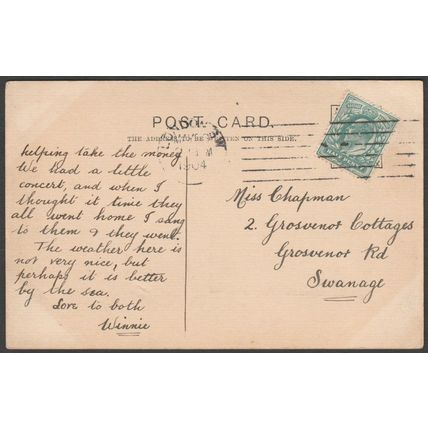 POST CARD.
THE ADDRESS TO BE WRITTEN ON THIS SIDE.
1904
helping take the money
We had a little
concert, and when I
thought it time they
all went home I sang
to them & they went.
The weather here is
not very nice, but
perhaps it is better
by the sea.
Love to both
Winnie
Miss Chapman
2. Grosvenor Cottages
Grosvenor Rd
Swanage